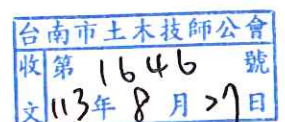 台南市土木技師公會
收 第 1646 號
文 113年 8 月 27日